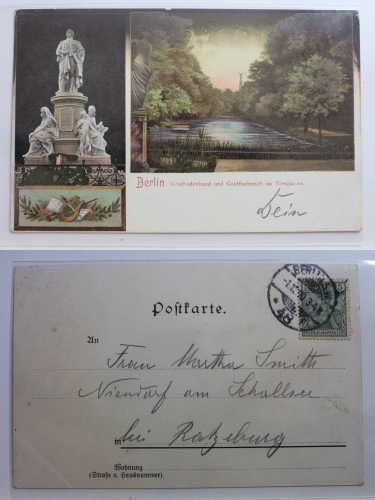 Berlin Goethedenkmal und Goldfischteich im Tiergarten.
Dein
BERLIN
48
Postkarte.
An
Frau Martha Smith
Niendorf am Schallsee
in bei Ratzeburg
Wohnung
(Straße u. Hausnummer).